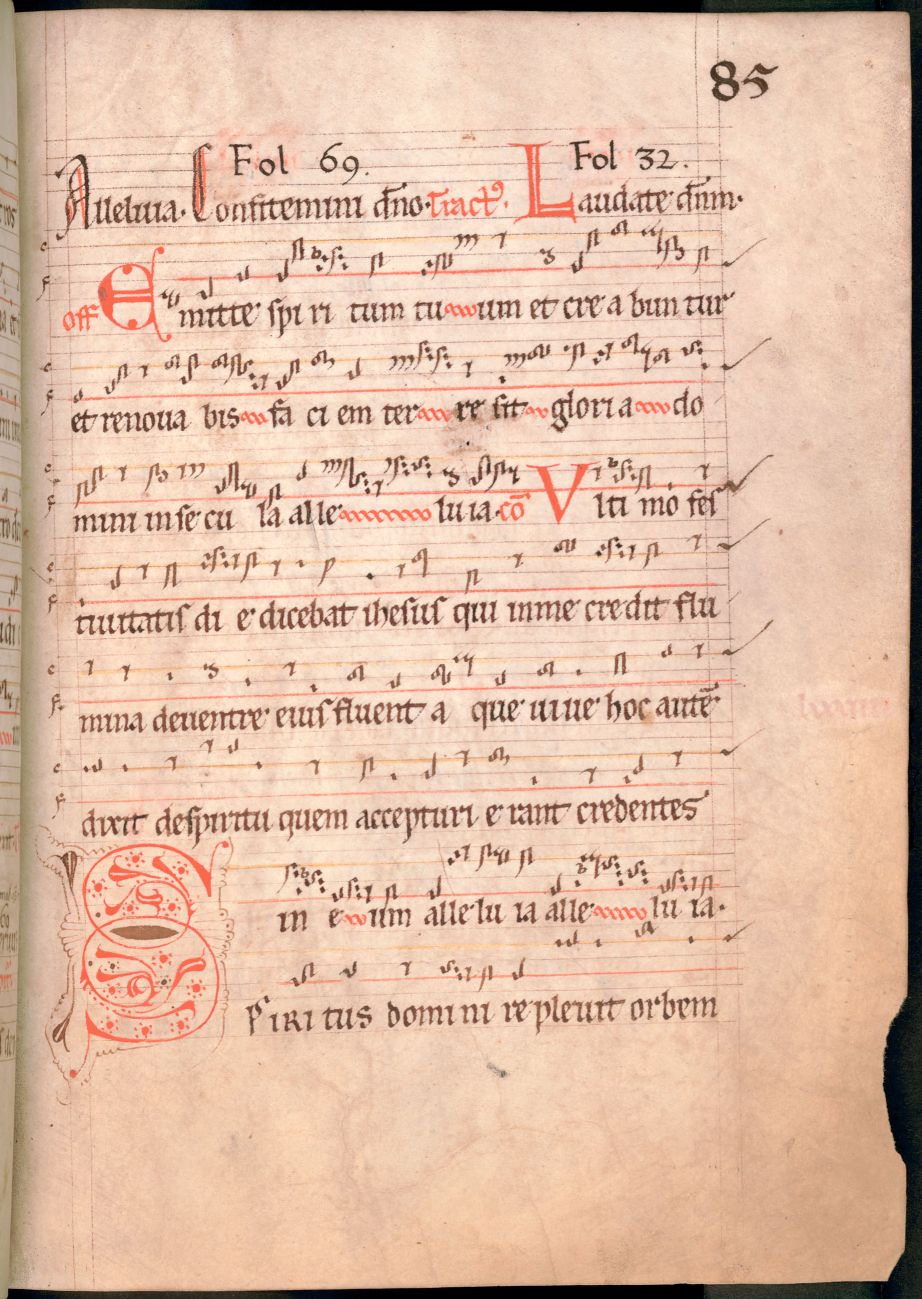 85
Fol 69. Fol 32.
Alleluia. Confitemini dño. Tract⁹. Laudate dñm.
off Emitte spi ri tum tu um et cre a bun tur
et renoua bis fa ci em ter re sit gloria do
mini in se cu la alle lu ia. cō Vlti mo fes
tiuitatis di e dicebat ihesus qui in me credit flu
mina deuentre eius fluent a que uiue hoc autē
dixit despiritu quem accepturi e rant credentes
in e um alle lu ia alle lu ia.
SPIRI tus domi ni re pleuit orbem
c
f
c
f
c
f
c
f
c
f
c
f